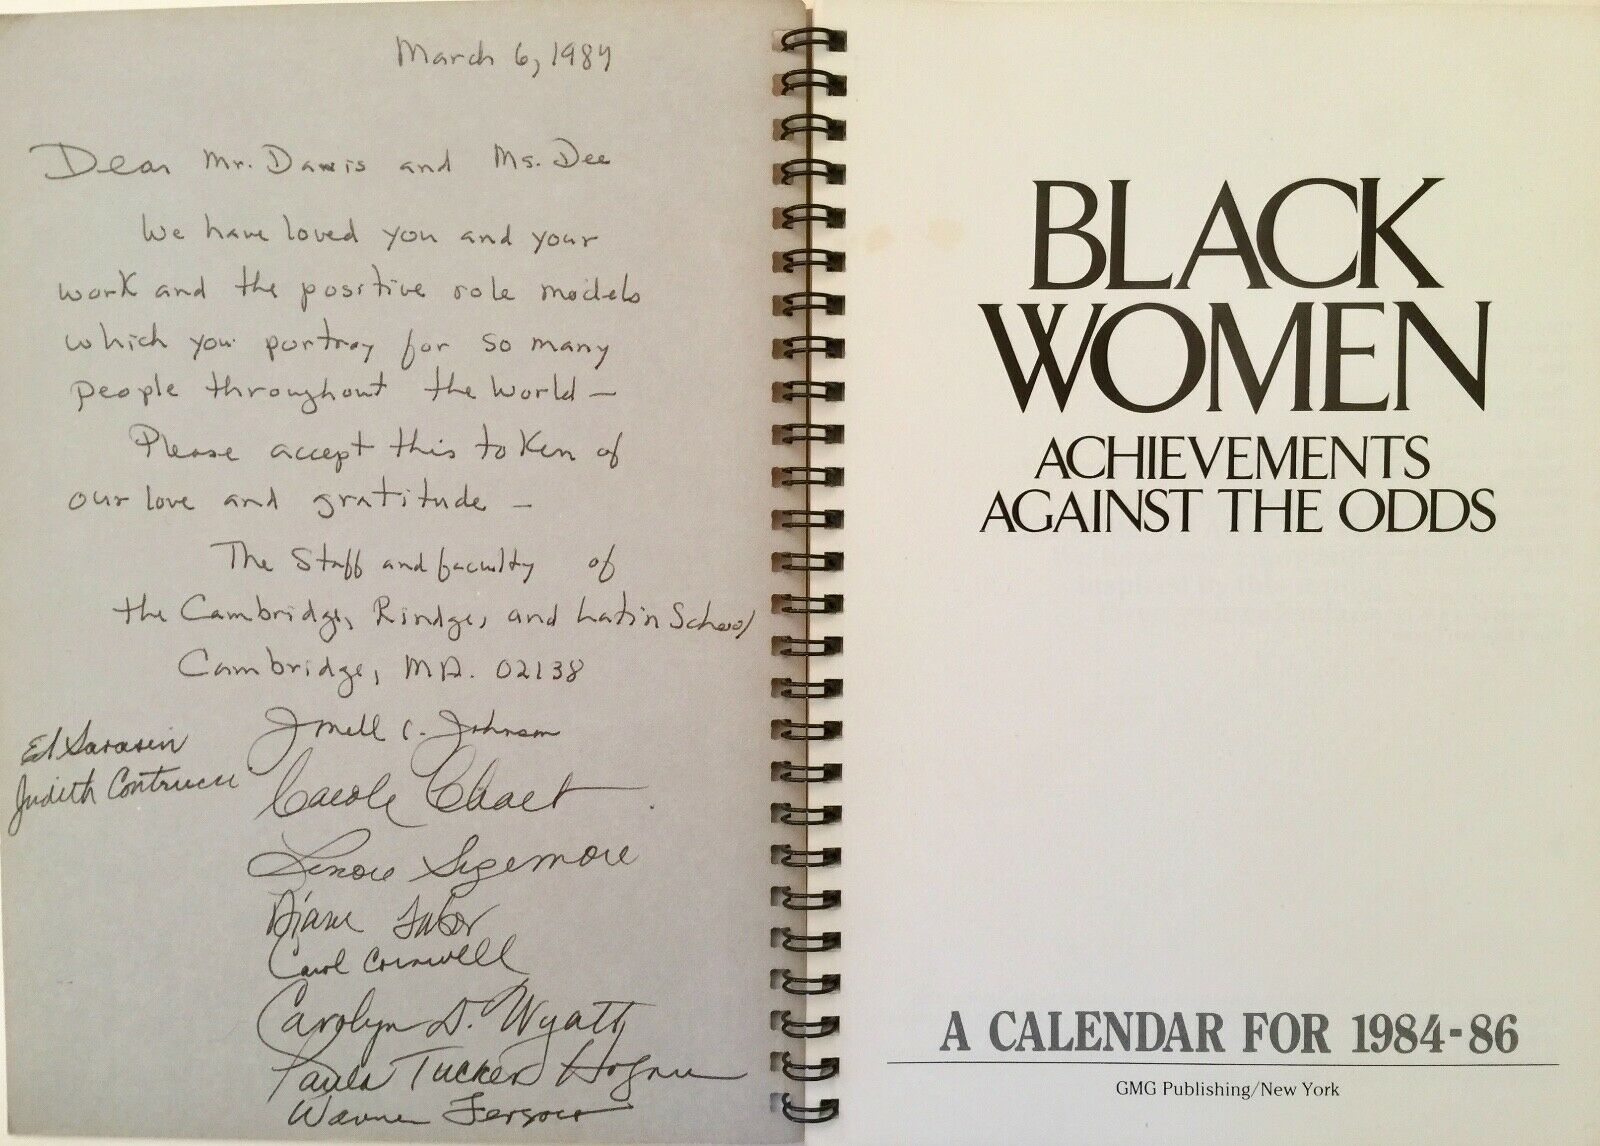 March 6, 1984
Dear Mr. Davis and Ms. Dee
We have loved you and your
work and the positive role models
which you portray for so many
people throughout the world —
Please accept this token of
our love and gratitude —
The Staff and faculty of
the Cambridge, Rindge, and Latin School
Cambridge, MA. 02138
Ed Sarasin
Judith Contrucci
C. Johnson
Carole Chaet
Lenore Sizemore
Diane Tabor
Carol Cornwell
Carolyn D. Wyatt
Paula Tucker Hogan
BLACK
WOMEN
ACHIEVEMENTS
AGAINST THE ODDS
A CALENDAR FOR 1984-86
GMG Publishing/New York